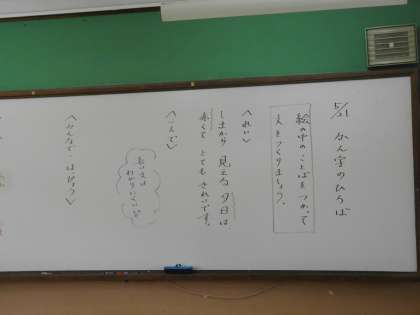 5/21 かん字のひろば
絵の中のことばをつかって
文をつくりましょう。
〈れい〉
しまから 見える 夕日は
赤くて とても きれいです。
〈ペアで〉
長い文は
わかりにくいな
〈みんなで・はっぴょう〉